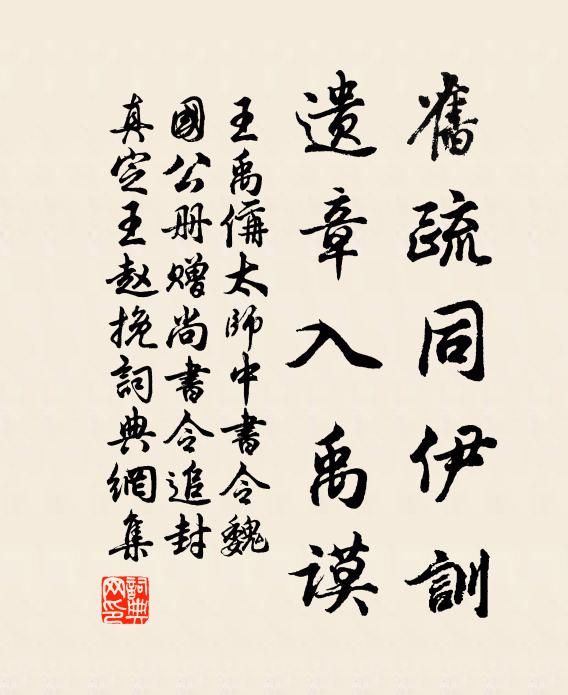 舊疏同伊訓
遺章入禹謨
王禹偁太師中書令魏
國公册贈尚書令追封
真定王赵挽詞典網集
詞典网印